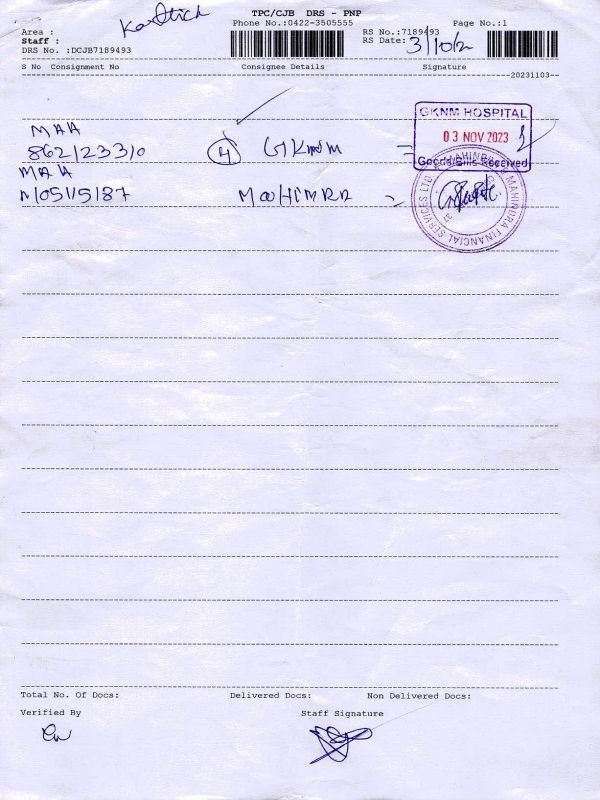 Karthick
TPC/CJB DRS - PNP
Phone No.:0422-3505555
Page No.:1
Area :
Staff :
DRS No. :DCJB7189493
RS No.:7189493
RS Date: 3/10/2
S No Consignment No Consignee Details Signature
20231103
MAA
862123310 4 GKNM =
GKNM HOSPITAL
03 NOV 2023
Goods/Bills Received
MAA
105115187 =
MAHINDRA & MAHINDRA FINANCIAL SERVICES LTD
Total No. Of Docs: Delivered Docs: Non Delivered Docs:
Verified By Staff Signature